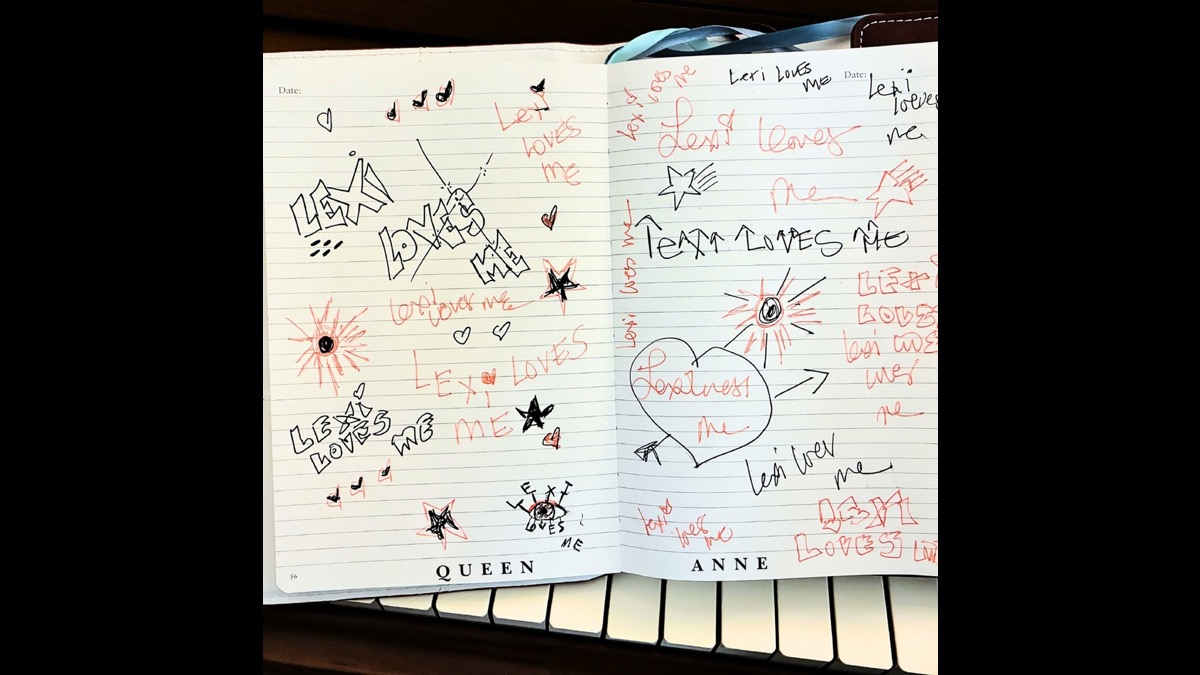 Date:
LEXI
LOVES
ME
LEXi
LOVES
ME
Lexi
Loves me
LEXi LOVES
ME
LEXi
LOVES ME
LEXI
LOVES
ME
56
QUEEN
Lexi Loves
me
Lexi Loves
ME
Date:
Lexi
loeves
me
Lexi loves
me
LEXI LOVES ME
Lexi
LEXI
LOVES
lexi
me
me
Lexi lover
me
lexi
loves
me
LEXI
LOVES
ANNE